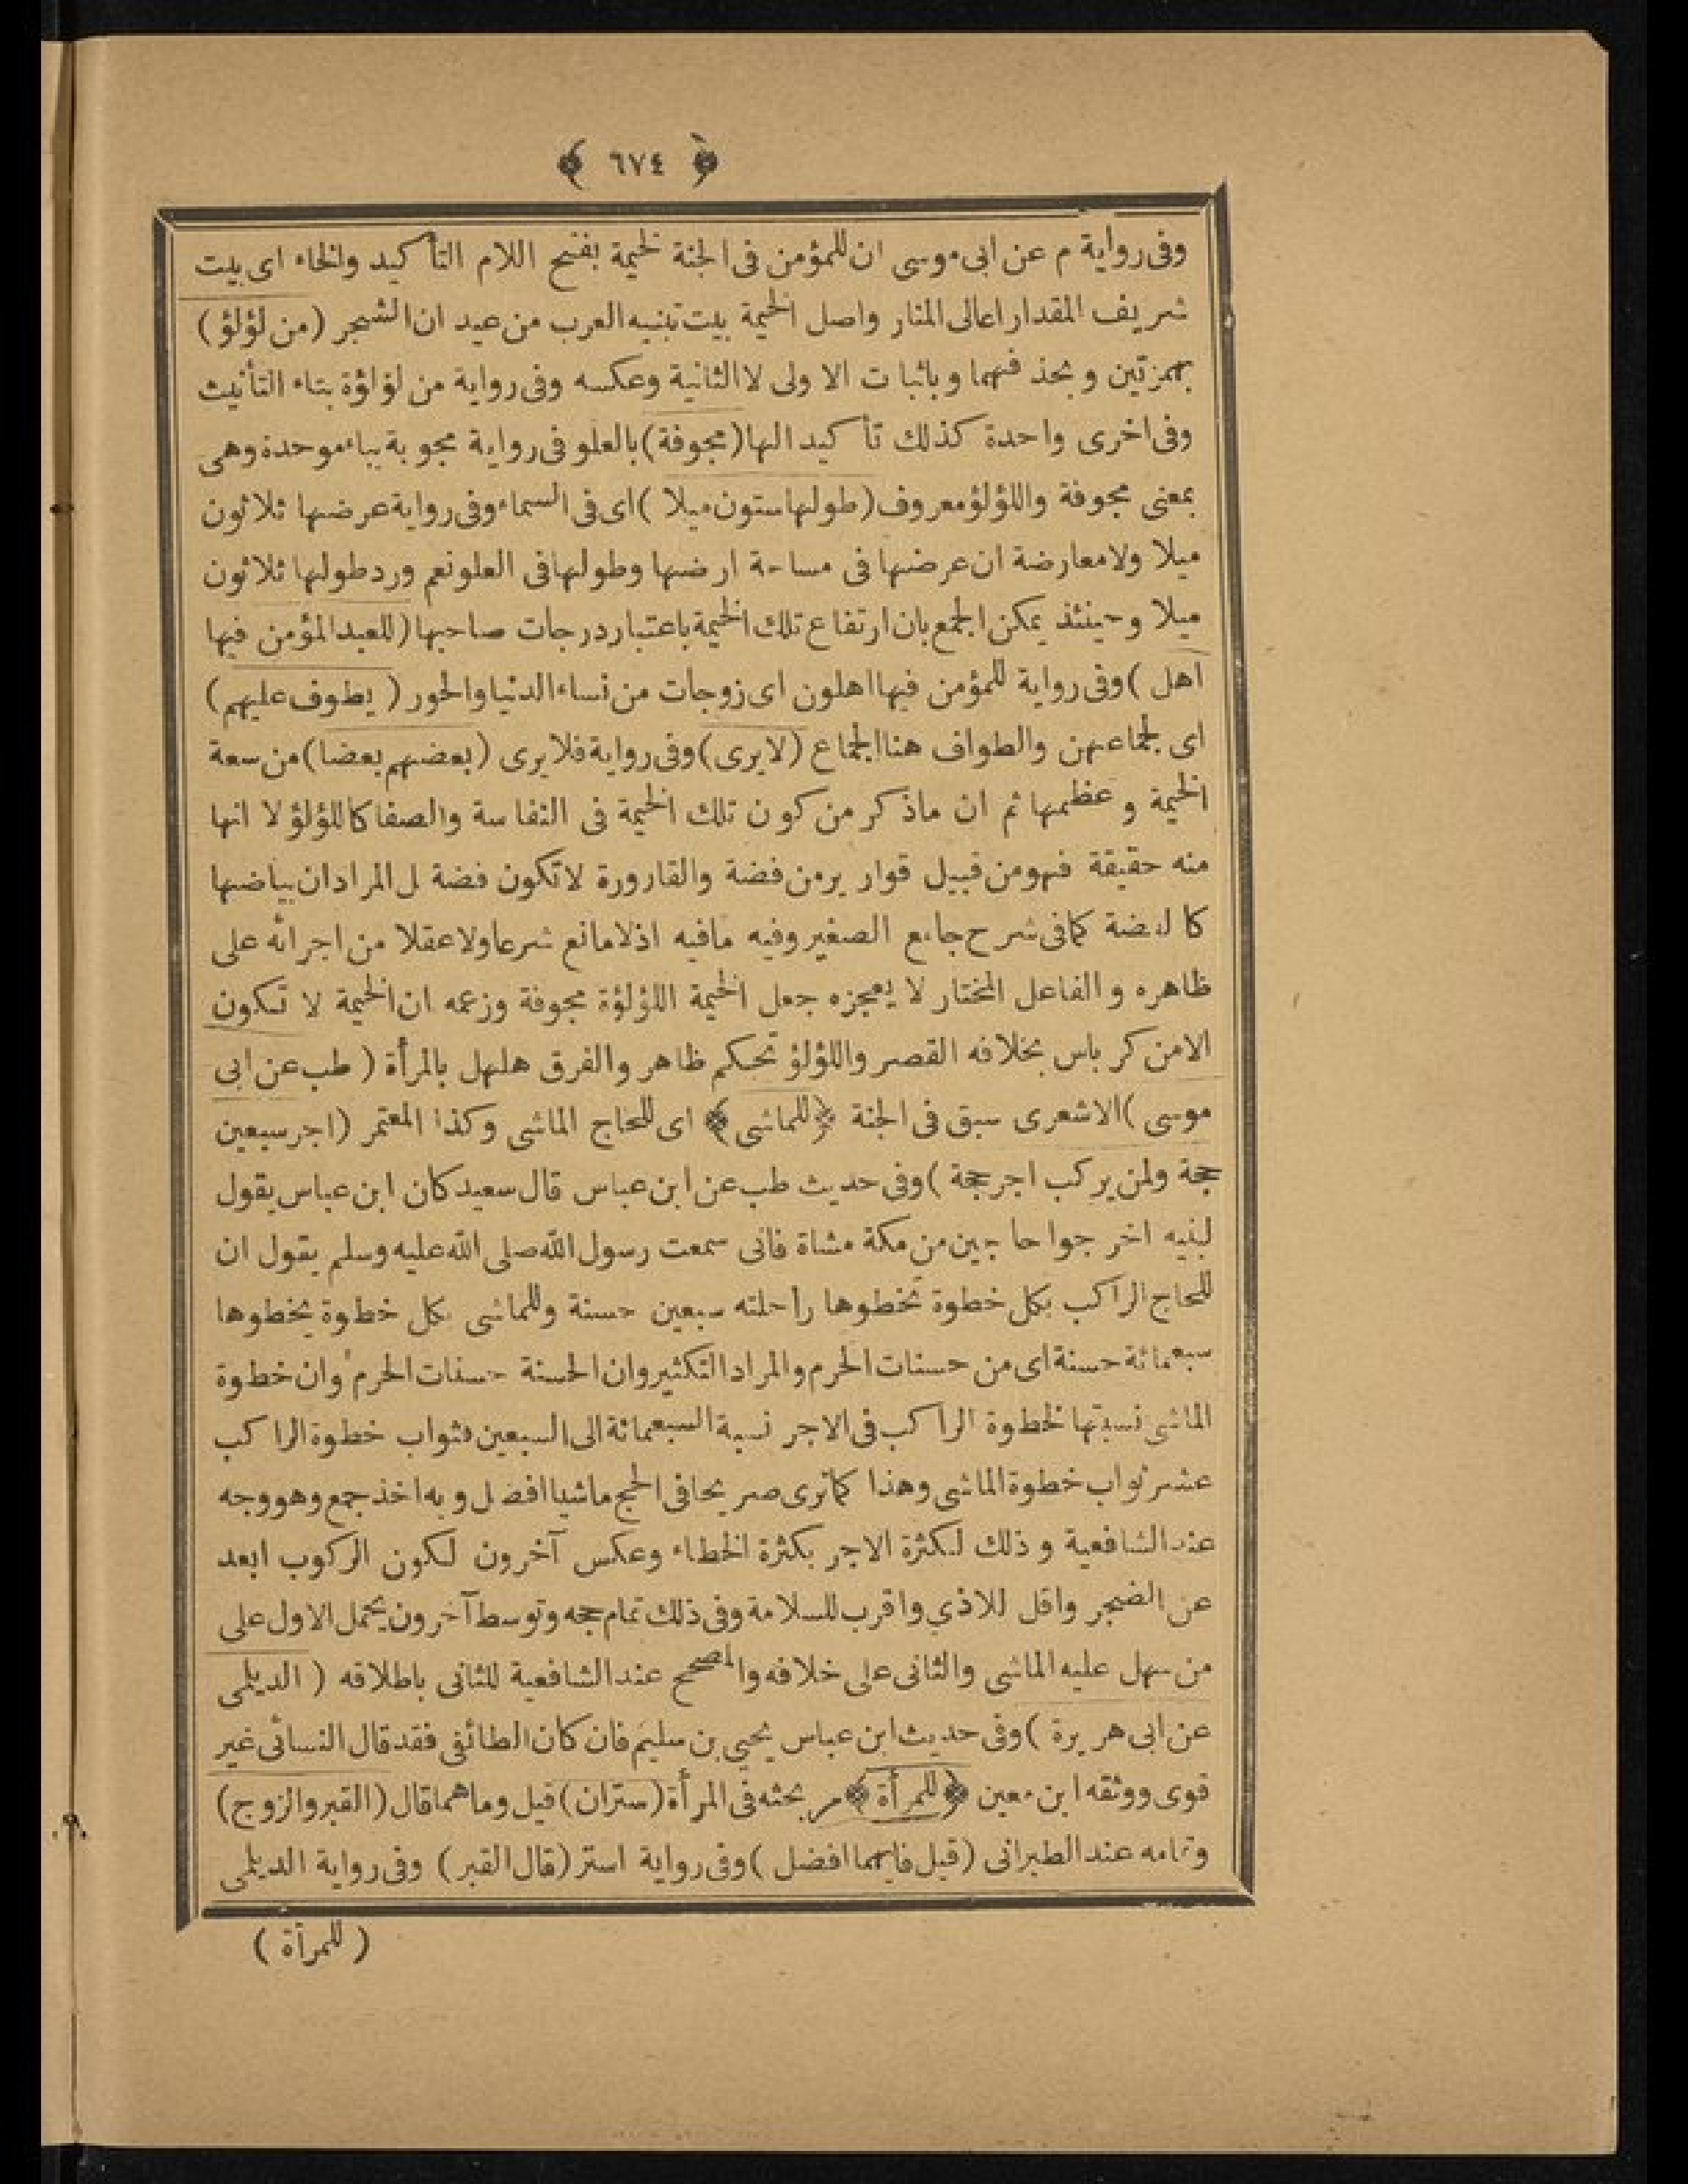 ﴿ ٦٧٤ ﴾
وفى رواية م عن ابى موسى ان للمؤمن فى الجنة لخيمة بفتح اللام التأكيد والخاء اى بيت
شريف المقدار اعالى المنار واصل الخيمة بيت تبنيه العرب من عيد ان الشجر (من لؤلؤ)
بهمزتين و بحذ فهما و باثبا ت الا ولى لا الثانية وعكسه وفى رواية من لؤلؤة بتاء التأنيث
وفى اخرى واحدة كذلك تأكيد الها (مجوفة) بالعلو فى رواية مجو بة بباء موحدة وهى
بمعنى مجوفة واللؤلؤ معروف (طولها ستون ميلا) اى فى السماء وفى رواية عرضها ثلاثون
ميلا ولا معارضة ان عرضها فى مساحة ارضها وطولها فى العلو نعم ورد طولها ثلاثون
ميلا وحينئذ يمكن الجمع بان ارتفاع تلك الخيمة باعتبار درجات صاحبها (للعبد المؤمن فيها
اهل) وفى رواية للمؤمن فيها اهلون اى زوجات من نساء الدنيا والحور (يطوف عليهم)
اى لجماعهن والطواف هنا الجماع (لا يرى) وفى رواية فلا يرى (بعضهم بعضا) من سعة
الخيمة و عظمها ثم ان ماذكر من كون تلك الخيمة فى النفاسة والصفا كاللؤلؤ لا انها
منه حقيقة فهو من قبيل قوار ير من فضة والقارورة لا تكون فضة ل المراد ان بياضها
كا لفضة كما فى شرح جامع الصغير وفيه مافيه اذ لا مانع شرعا ولا عقلا من اجرائه على
ظاهره و الفاعل المختار لا يعجزه جعل الخيمة اللؤلؤة مجوفة وزعمه ان الخيمة لا تكون
الا من كر باس بخلافه القصر واللؤلؤ تحكم ظاهر والفرق هلهل بالمرأة (طب عن ابى
موسى) الاشعرى سبق فى الجنة ﴿للماشى﴾ اى للحاج الماشى وكذا المعتمر (اجر سبعين
حجة ولمن يركب اجر حجة) وفى حديث طب عن ابن عباس قال سعيد كان ابن عباس يقول
لبنيه اخر جوا حا جين من مكة مشاة فانى سمعت رسول الله صلى الله عليه وسلم يقول ان
للحاج الراكب بكل خطوة تخطوها راحلته سبعين حسنة وللماشى بكل خطوة يخطوها
سبعمائة حسنة اى من حسنات الحرم والمراد التكثير وان الحسنة حسنات الحرم وان خطوة
الماشى نسبتها لخطوة الراكب فى الاجر نسبة السبعمائة الى السبعين فثواب خطوة الراكب
عشر ثواب خطوة الماشى وهذا كماترى صر يحا فى الحج ماشيا افضل و به اخذ جمع وهو وجه
عند الشافعية و ذلك لكثرة الاجر بكثرة الخطاء وعكس آخرون لكون الركوب ابعد
عن الضجر واقل للاذي واقرب للسلامة وفى ذلك تمام حجه وتوسط آخرون يحمل الاول على
من سهل عليه الماشى والثانى على خلافه والمصحح عند الشافعية للثانى باطلاقه (الديلمى
عن ابى هريرة) وفى حديث ابن عباس يحيى بن سليم فان كان الطائفى فقد قال النسائى غير
قوى ووثقه ابن معين ﴿للمرأة﴾ مر بحثه فى المرأة (ستران) قيل وما هما قال (القبر والزوج)
وتمامه عند الطبرانى (قيل فايهما افضل) وفى رواية استر (قال القبر) وفى رواية الديلمى
(للمرأة)